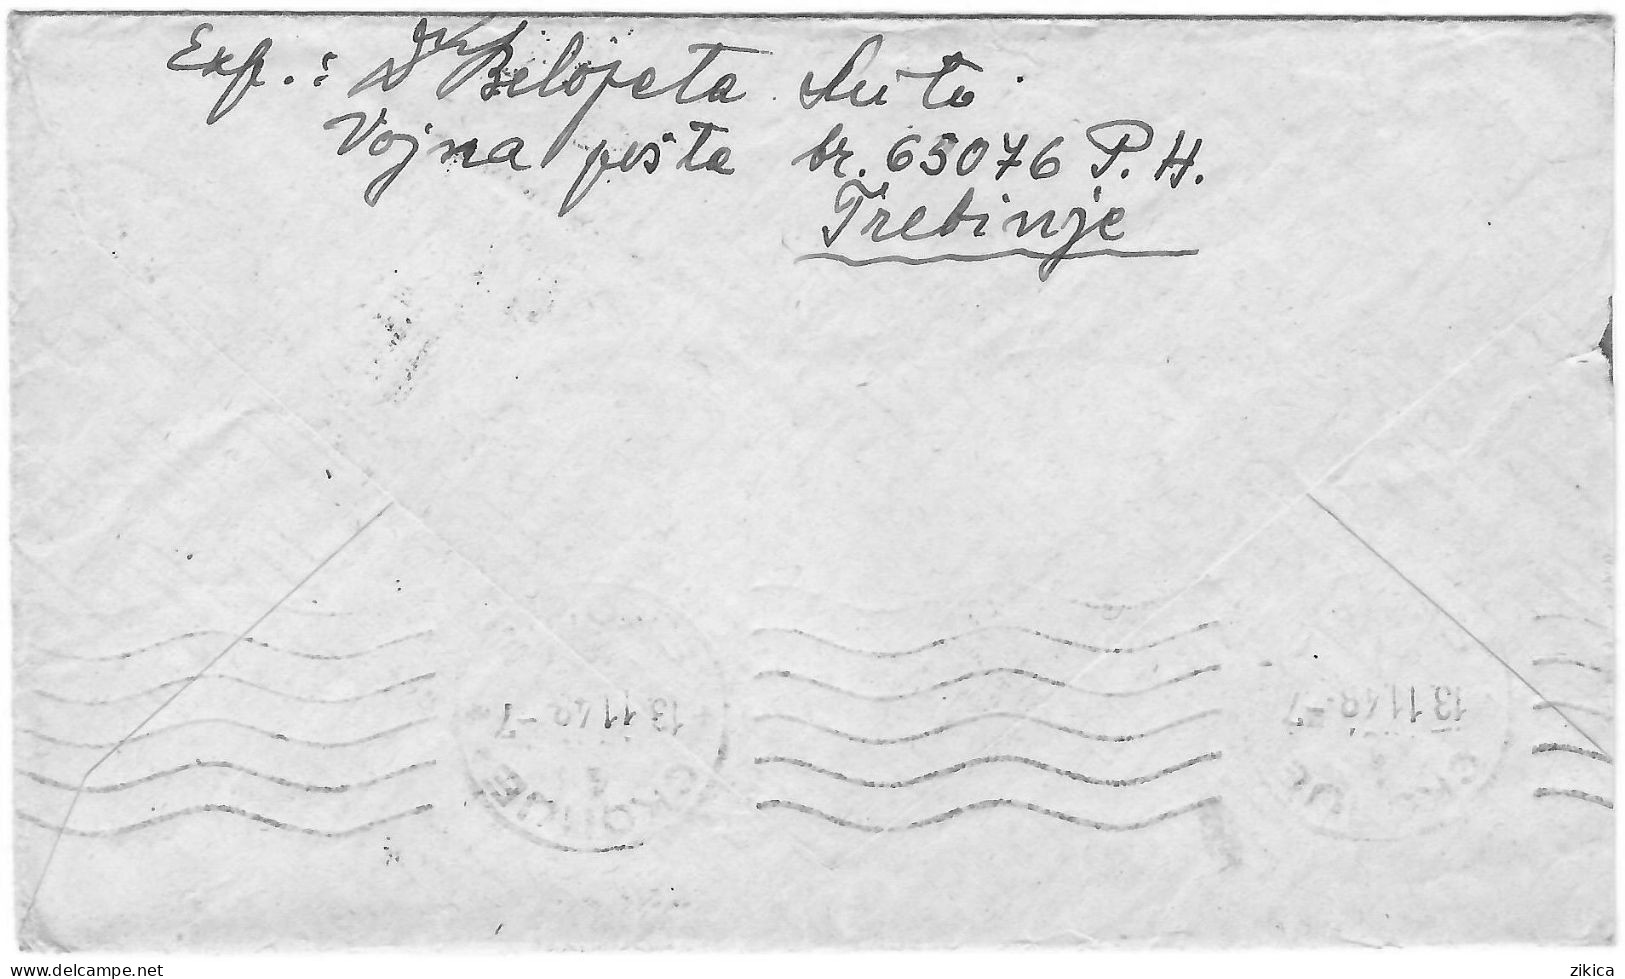 Exp.: Dr Belopeta Ante
Vojna pošta br. 65076 P. H.
Trebinje
13.11.48.-7
СКОПЈЕ
13.11.48.-7
zikica